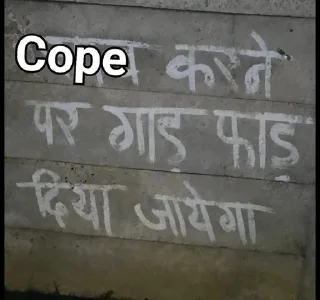 Cope करने
पर गाड़ फाड़
दिया जायेगा